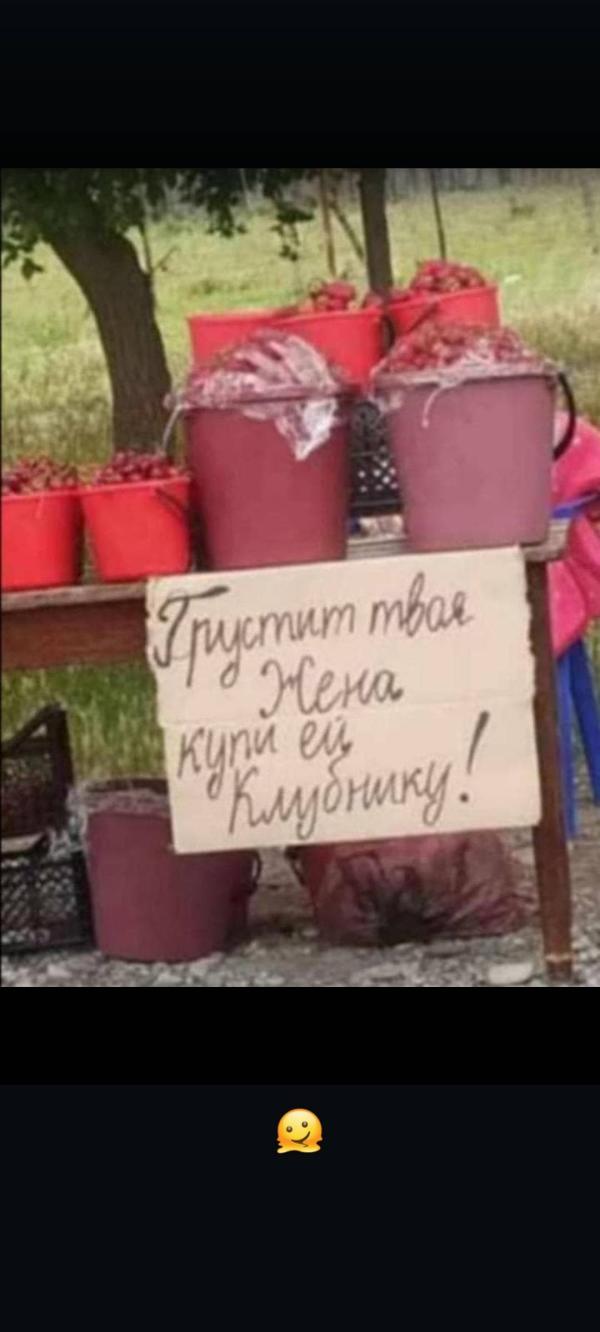 Грустит твоя
Жена
купи ей
Клубнику!